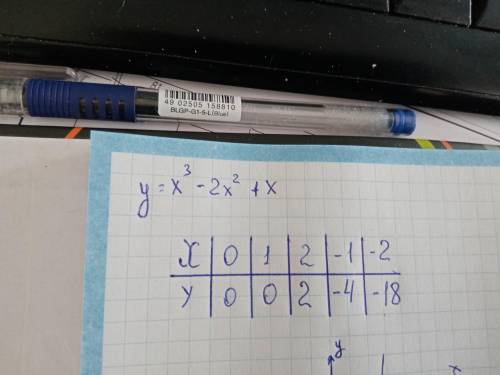 49 02505 158810
BLGP-G1-5-L(Blue)
y = x³ - 2x² + x
X 0 1 2 -1 -2
Y 0 0 2 -4 -18
y
x